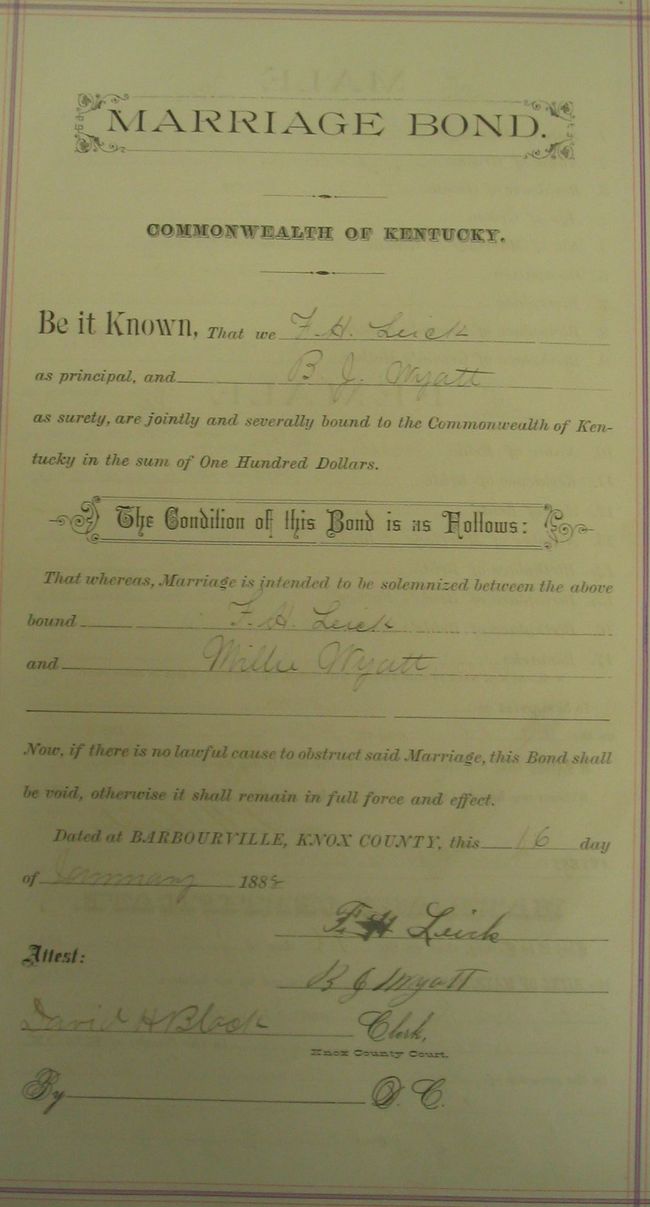 MARRIAGE BOND.
COMMONWEALTH OF KENTUCKY.
Be it Known, That we F. H. Leick
as principal, and B. J. Wyatt
as surety, are jointly and severally bound to the Commonwealth of Ken-
tucky in the sum of One Hundred Dollars.
The Condition of this Bond is as Follows:
That whereas, Marriage is intended to be solemnized between the above
bound F. H. Leick
and Millie Wyatt
Now, if there is no lawful cause to obstruct said Marriage, this Bond shall
be void, otherwise it shall remain in full force and effect.
Dated at BARBOURVILLE, KNOX COUNTY, this 16 day
of January 188
F. H Leick
Attest:
B J Wyatt
David H Black Clerk,
Knox County Court.
By D. C.